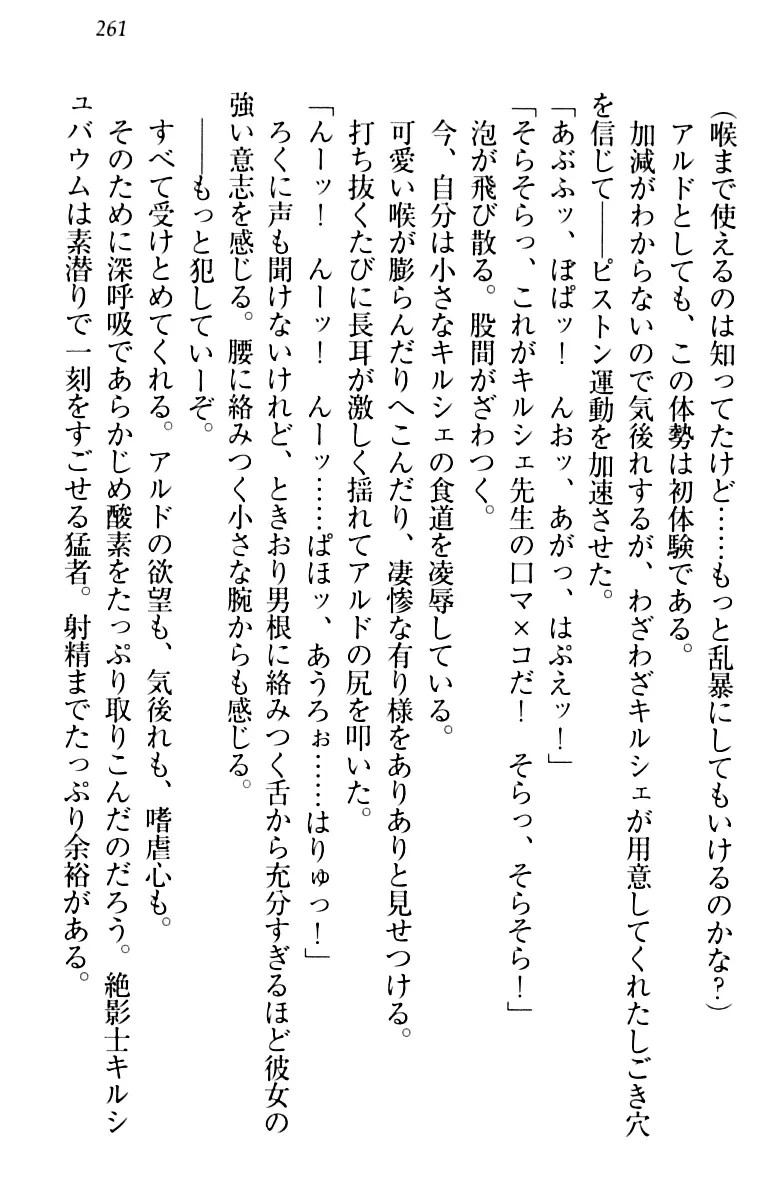 261
(喉まで使えるのは知ってたけど……もっと乱暴にしてもいけるのかな?)
アルドとしても、この体勢は初体験である。
加減がわからないので気後れするが、わざわざキルシェが用意してくれたしごき穴
を信じて――ピストン運動を加速させた。
「あぶふッ、ぼぱッ! んおッ、あがっ、はぷえッ!」
「そらそらっ、これがキルシェ先生の口マ×コだ! そらっ、そらそら!」
泡が飛び散る。股間がざわつく。
今、自分は小さなキルシェの食道を凌辱している。
可愛い喉が膨らんだりへこんだり、凄惨な有り様をありありと見せつける。
打ち抜くたびに長耳が激しく揺れてアルドの尻を叩いた。
「んーッ! んーッ! んーッ……ぱほッ、あうろぉ……はりゅっ!」
ろくに声も聞けないけれど、ときおり男根に絡みつく舌から充分すぎるほど彼女の
強い意志を感じる。腰に絡みつく小さな腕からも感じる。
――もっと犯していーぞ。
すべて受けとめてくれる。アルドの欲望も、気後れも、嗜虐心も。
そのために深呼吸であらかじめ酸素をたっぷり取りこんだのだろう。絶影士キルシ
ュバウムは素潜りで一刻をすごせる猛者。射精までたっぷり余裕がある。